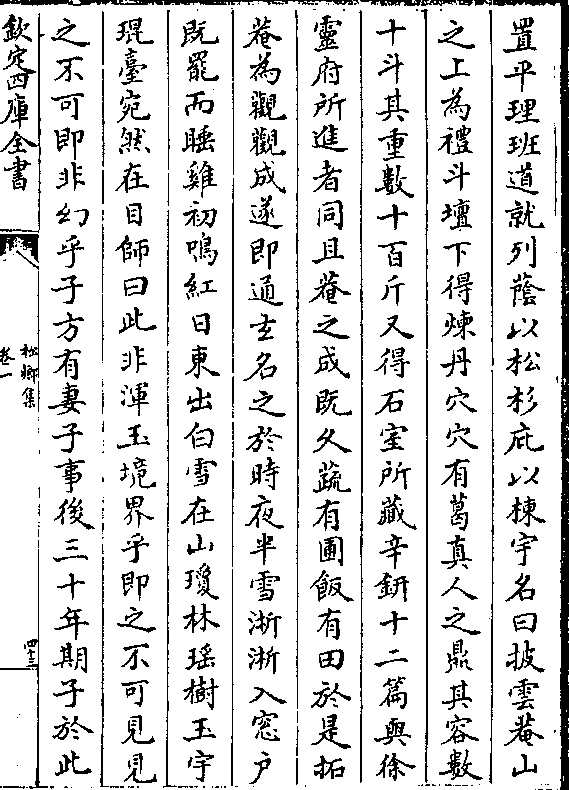 置平理班道就列蔭以松杉庇以棟宇名曰披雲菴山
之上為禮斗壇下得煉丹穴穴有葛真人之鼎其容數
十斗其重數十百斤又得石室所藏辛鈃十二篇與徐
靈府所進者同且菴之成既久蔬有圃飯有田於是拓
菴為觀觀成遂即通玄名之於時夜半雪淅淅入窓户
既罷而睡雞初鳴紅日東出白雪在山瓊林瑶樹玉宇
琨臺宛然在目師曰此非渾玉境界乎即之不可見見
之不可即非幻乎子方有妻子事後三十年期子於此
欽定四庫全書
松鄉集
卷一
四十三